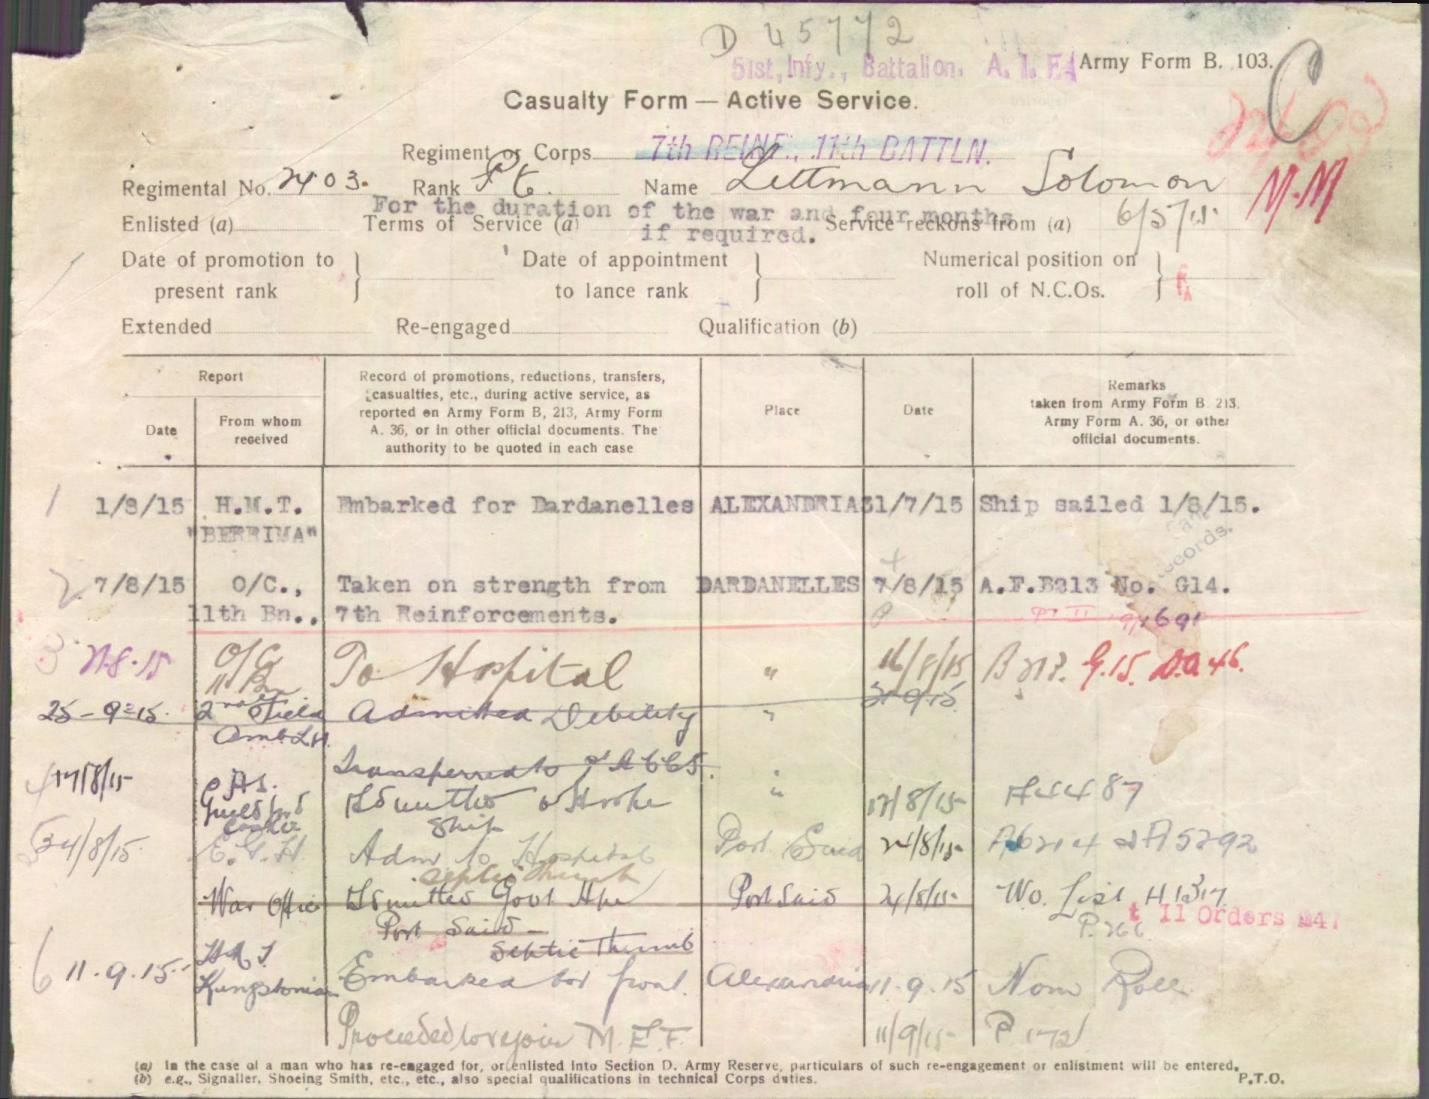 D 45772
51st, Infy., Battalion, A. I. F.
Army Form B. 103.
C
Casualty Form — Active Service.
Regiment or Corps 7th REINF., 11th BATTLN.
Regimental No. 2403. Rank Pte. Name Littmann Solomon
M.M
For the duration of the war and four months
Enlisted (a) Terms of Service (a) Service reckons from (a) 6/5/15
if required.
Date of promotion to present rank } Date of appointment to lance rank } Numerical position on roll of N.C.Os. }
Extended Re-engaged Qualification (b)
Report
Date
From whom received
Record of promotions, reductions, transfers, casualties, etc., during active service, as reported on Army Form B, 213, Army Form A. 36, or in other official documents. The authority to be quoted in each case
Place
Date
Remarks taken from Army Form B. 213, Army Form A. 36, or other official documents.
1 1/8/15 H.M.T. Embarked for Dardanelles ALEXANDRIA 31/7/15 Ship sailed 1/8/15.
"BERRIMA"
records.
2 7/8/15 O/C., Taken on strength from DARDANELLES 7/8/15 A.F.B213 No. G14.
11th Bn., 7th Reinforcements.
3 21.8.15 O/C To Hospital " 16/8/15 B 213. G.15. D.A 46.
11 Bn
25-9-15. 2nd Field Admitted Debility " 21.9.15
Amb L.H.
Transferred to 1 A C C S.
4 17/8/15 " 17/8/15 A4487
Guildford Castle Ship
24/8/15 E.G.H. Adm to Hospital Port Said 24/8/15
septic thumb
War Office Govt Port Said 24/8/15 Wo. List H 1317
Port Said - P.266 II Orders
Septic Thumb
6 11.9.15 Kingstonian Embarked for front. Alexandria 11.9.15 Nom Roll
Proceeded to rejoin M.E.F. 11/9/15 P 172
(a) In the case of a man who has re-engaged for, or enlisted into Section D. Army Reserve, particulars of such re-engagement or enlistment will be entered.
(b) e.g., Signaller, Shoeing Smith, etc., etc., also special qualifications in technical Corps duties. P.T.O.